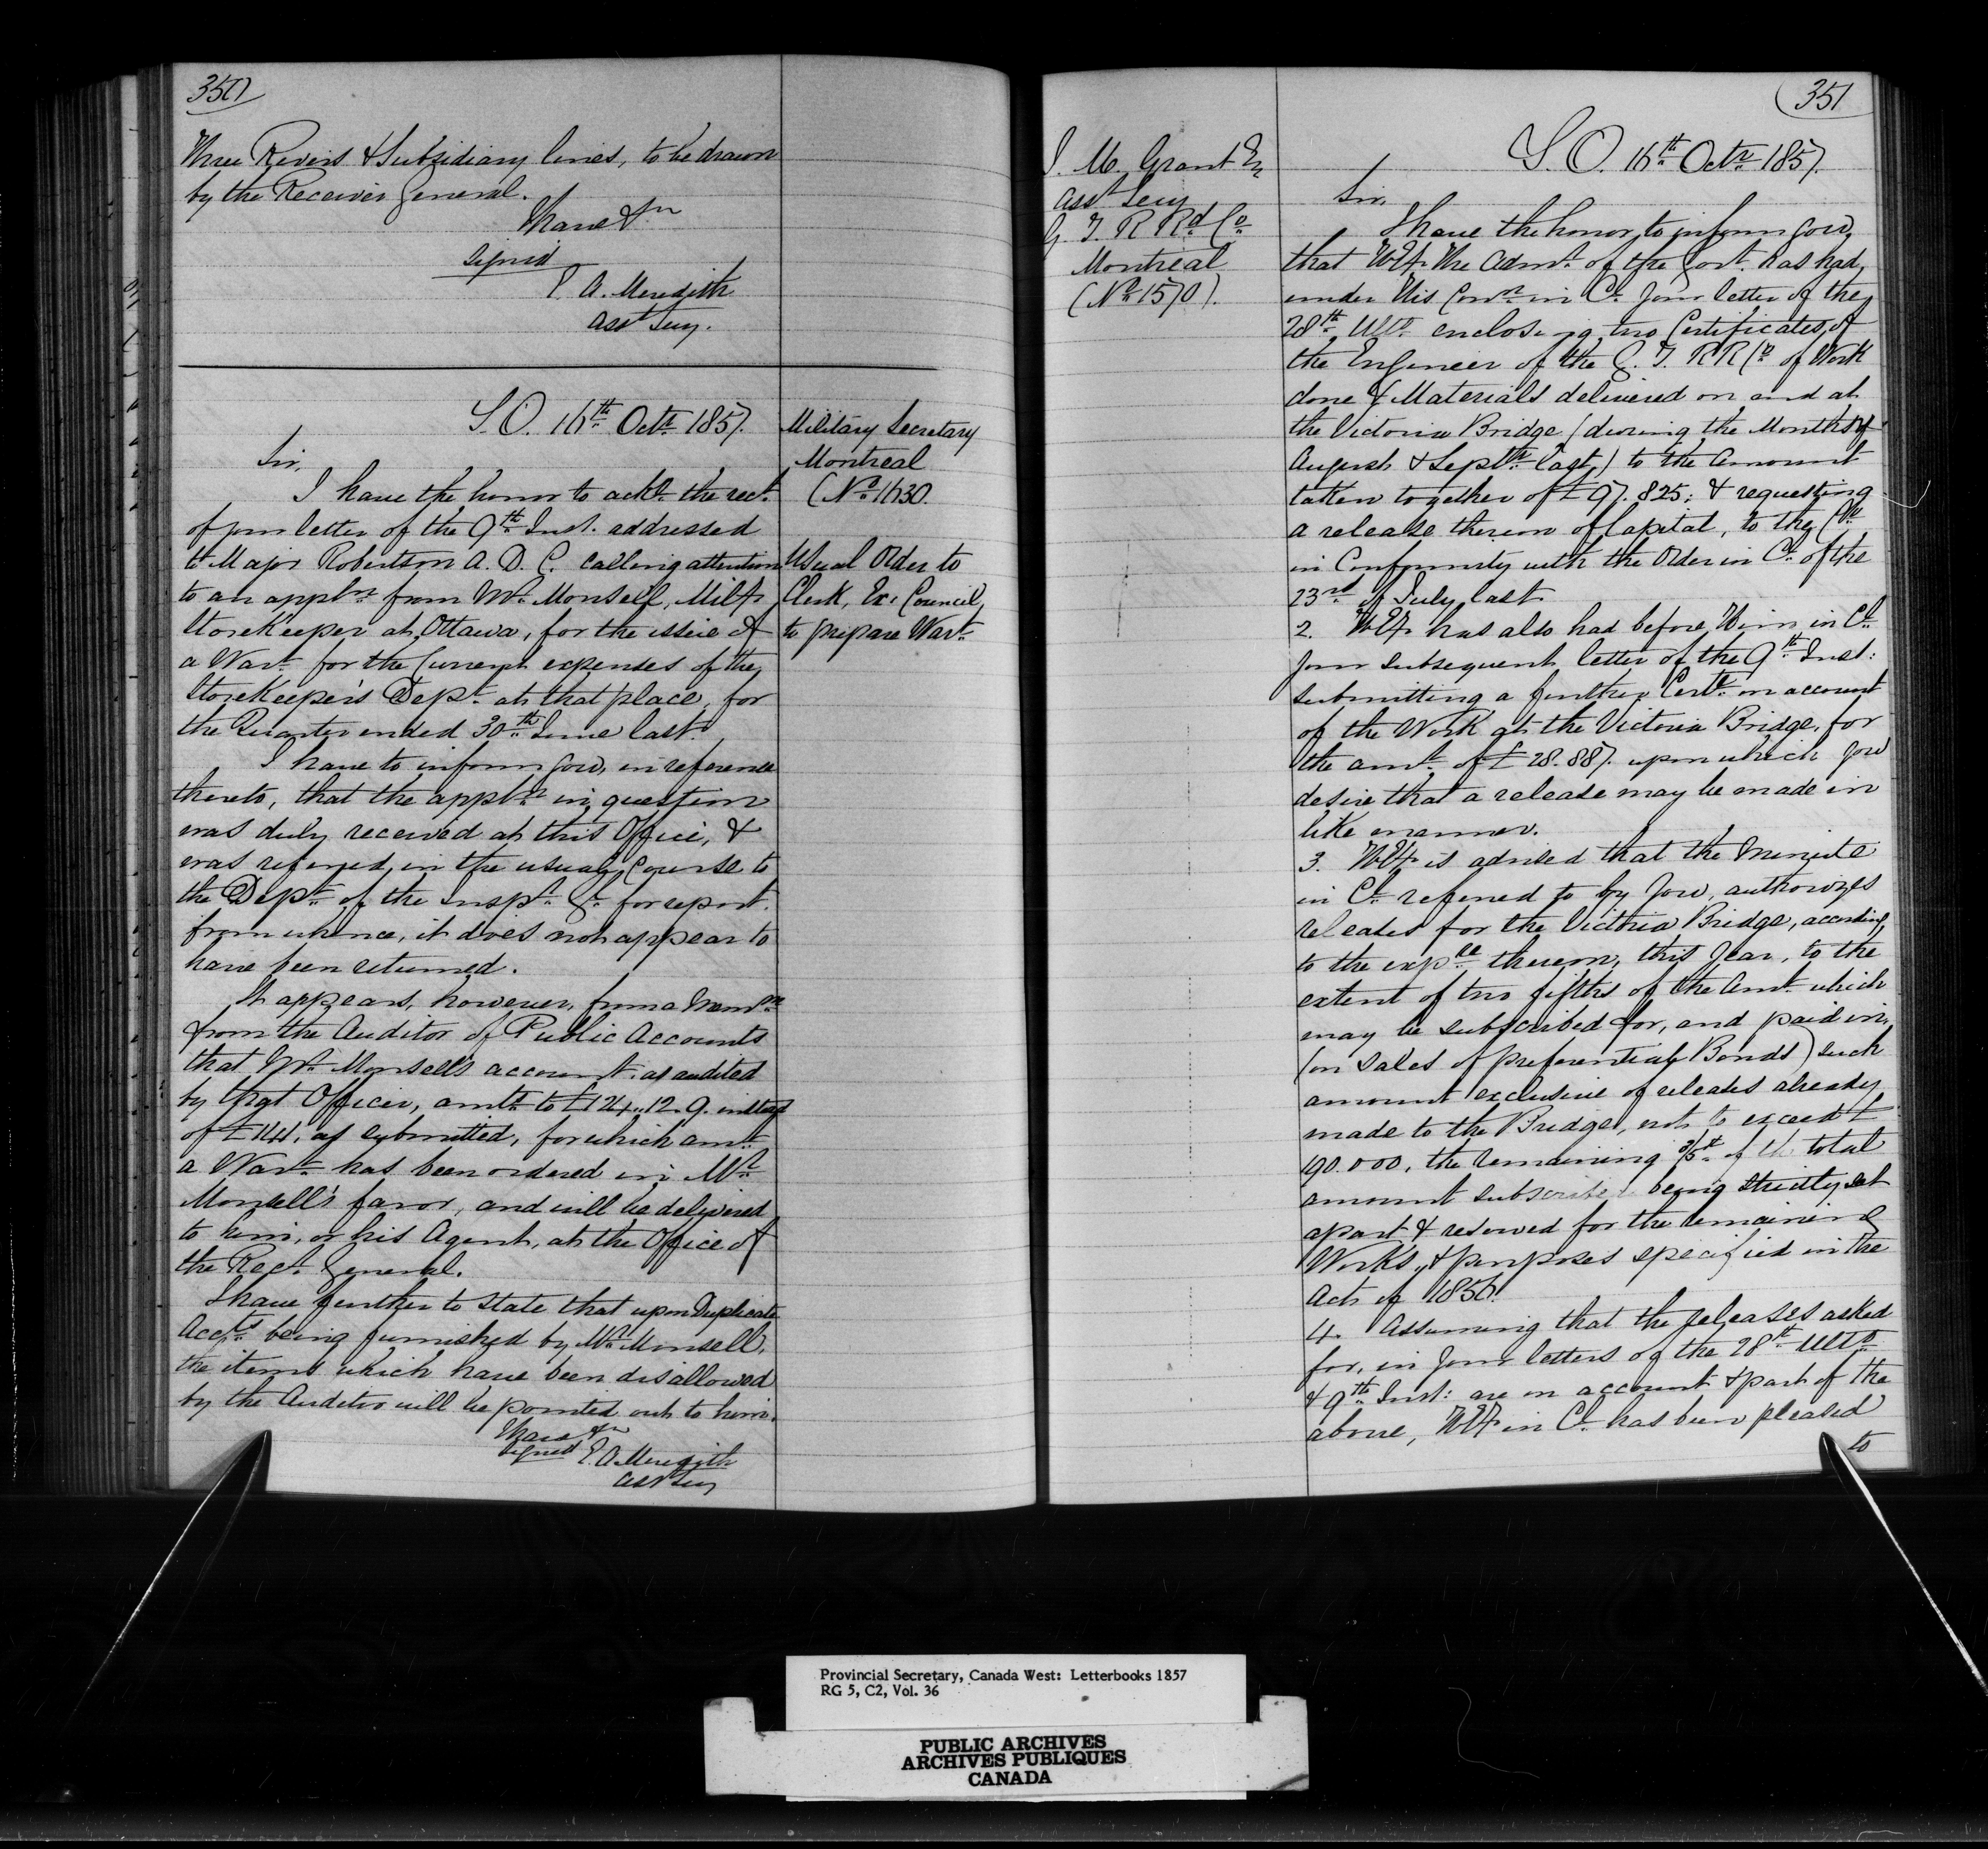 350
Three Rivers & Subsidiary lines, to be drawn
by the Receiver General.
I have &c
signed
E. A. Meredith
Asst Secy.
S.O. 16th Octr 1857.
Military Secretary
Montreal
(No 1630.
Usual Order to
Clerk, Ex: Council,
to prepare Wart
Sir,
I have the honor to ackl the rect
of your letter of the 9th Inst. addressed
to Major Robertson A. D. C. calling attention
to an appln from Mr Monsell, Milty
Storekeeper at Ottawa, for the issue of
a Wart for the Current expenses of the
Storekeeper's Dept at that place, for
the Quarter ended 30th June last.
I have to inform you, in reference
thereto, that the appln in question
was duly received at this Office, &
was referred in the usual course to
the Dept of the Inspr Gl for report.
from whence, it does not appear to
have been returned.
It appears, however, from a Memdm
from the Auditor of Public Accounts
that Mr Monsell's account as audited
by that Officer, amts to £124.12.9. instead
of £141, as submitted, for which amt
a Wart has been ordered in Mr
Monsell's favor, and will be delivered
to him, or his Agent, at the Office of
the Recr General.
I have further to state that upon Duplicate
Accts being furnished by Mr Monsell,
the items which have been disallowed
by the Auditor will be pointed out to him.
I have &c
signed E. A. Meredith
Asst Secy
351
J. M. Grant Esq
Asst Secy
G. T. R Rd Co
Montreal
(No 1570).
S.O. 16th Octr 1857.
Sir,
I have the honor to inform you,
that H. Ex. the Admr of the Govt. has had,
under His Conson in Cl your letter of the
28th Ulto enclosing two Certificates of
the Engineer of the G. T. R R Co of Work
done & Materials delivered on and at
the Victoria Bridge (during the Months of
August & Septr last,) to the amount
taken together of £97.825: & requesting
a release thereon of Capital, to the Coy
in Conformity with the Order in Cl of the
23rd of July last.
2. H. Ex. has also had before Him in Cl
your subsequent letter of the 9th Inst:
submitting a further Certe on account
of the Work at the Victoria Bridge, for
the amt of £28.887. upon which you
desire that a release may be made in
like manner.
3. H. Ex. is advised that the Minute
in Cl referred to by you, authorizes
releases for the Victoria Bridge, according,
to the expre thereon, this year, to the
extent of two fifths of the Amt which
may be subscribed for, and paid in,
(on sales of preferential Bonds) such
amount exclusive of releases already
made to the Bridge, not to exceed £
190.000, the remaining 3/5th of the total
amount subscribed being strictly set
apart & reserved for the remaining
Works, & purposes specified in the
Act of 1856.
4. Assuming that the releases asked
for, in your letters of the 28th Ulto
& 9th Inst: are on account & part of the
above, H. Ex. in Cl has been pleased
to
Provincial Secretary, Canada West: Letterbooks 1857
RG 5, C2, Vol. 36
PUBLIC ARCHIVES
ARCHIVES PUBLIQUES
CANADA